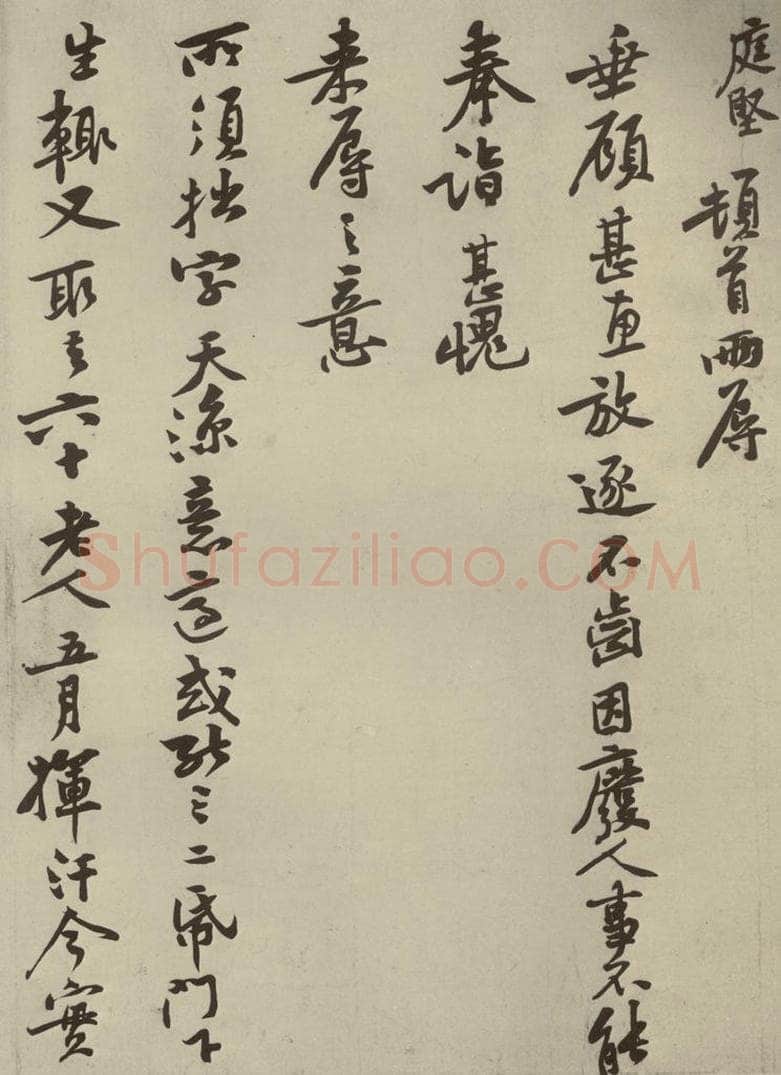 庭堅頓首兩辱
垂顧甚惠放逐不齒因廢人事不能
奉詣甚愧
来辱之意
所須拙字天凉意適或能三二帋門下
生輒又取去六十老人五月揮汗今實
Shufaziliao.COM